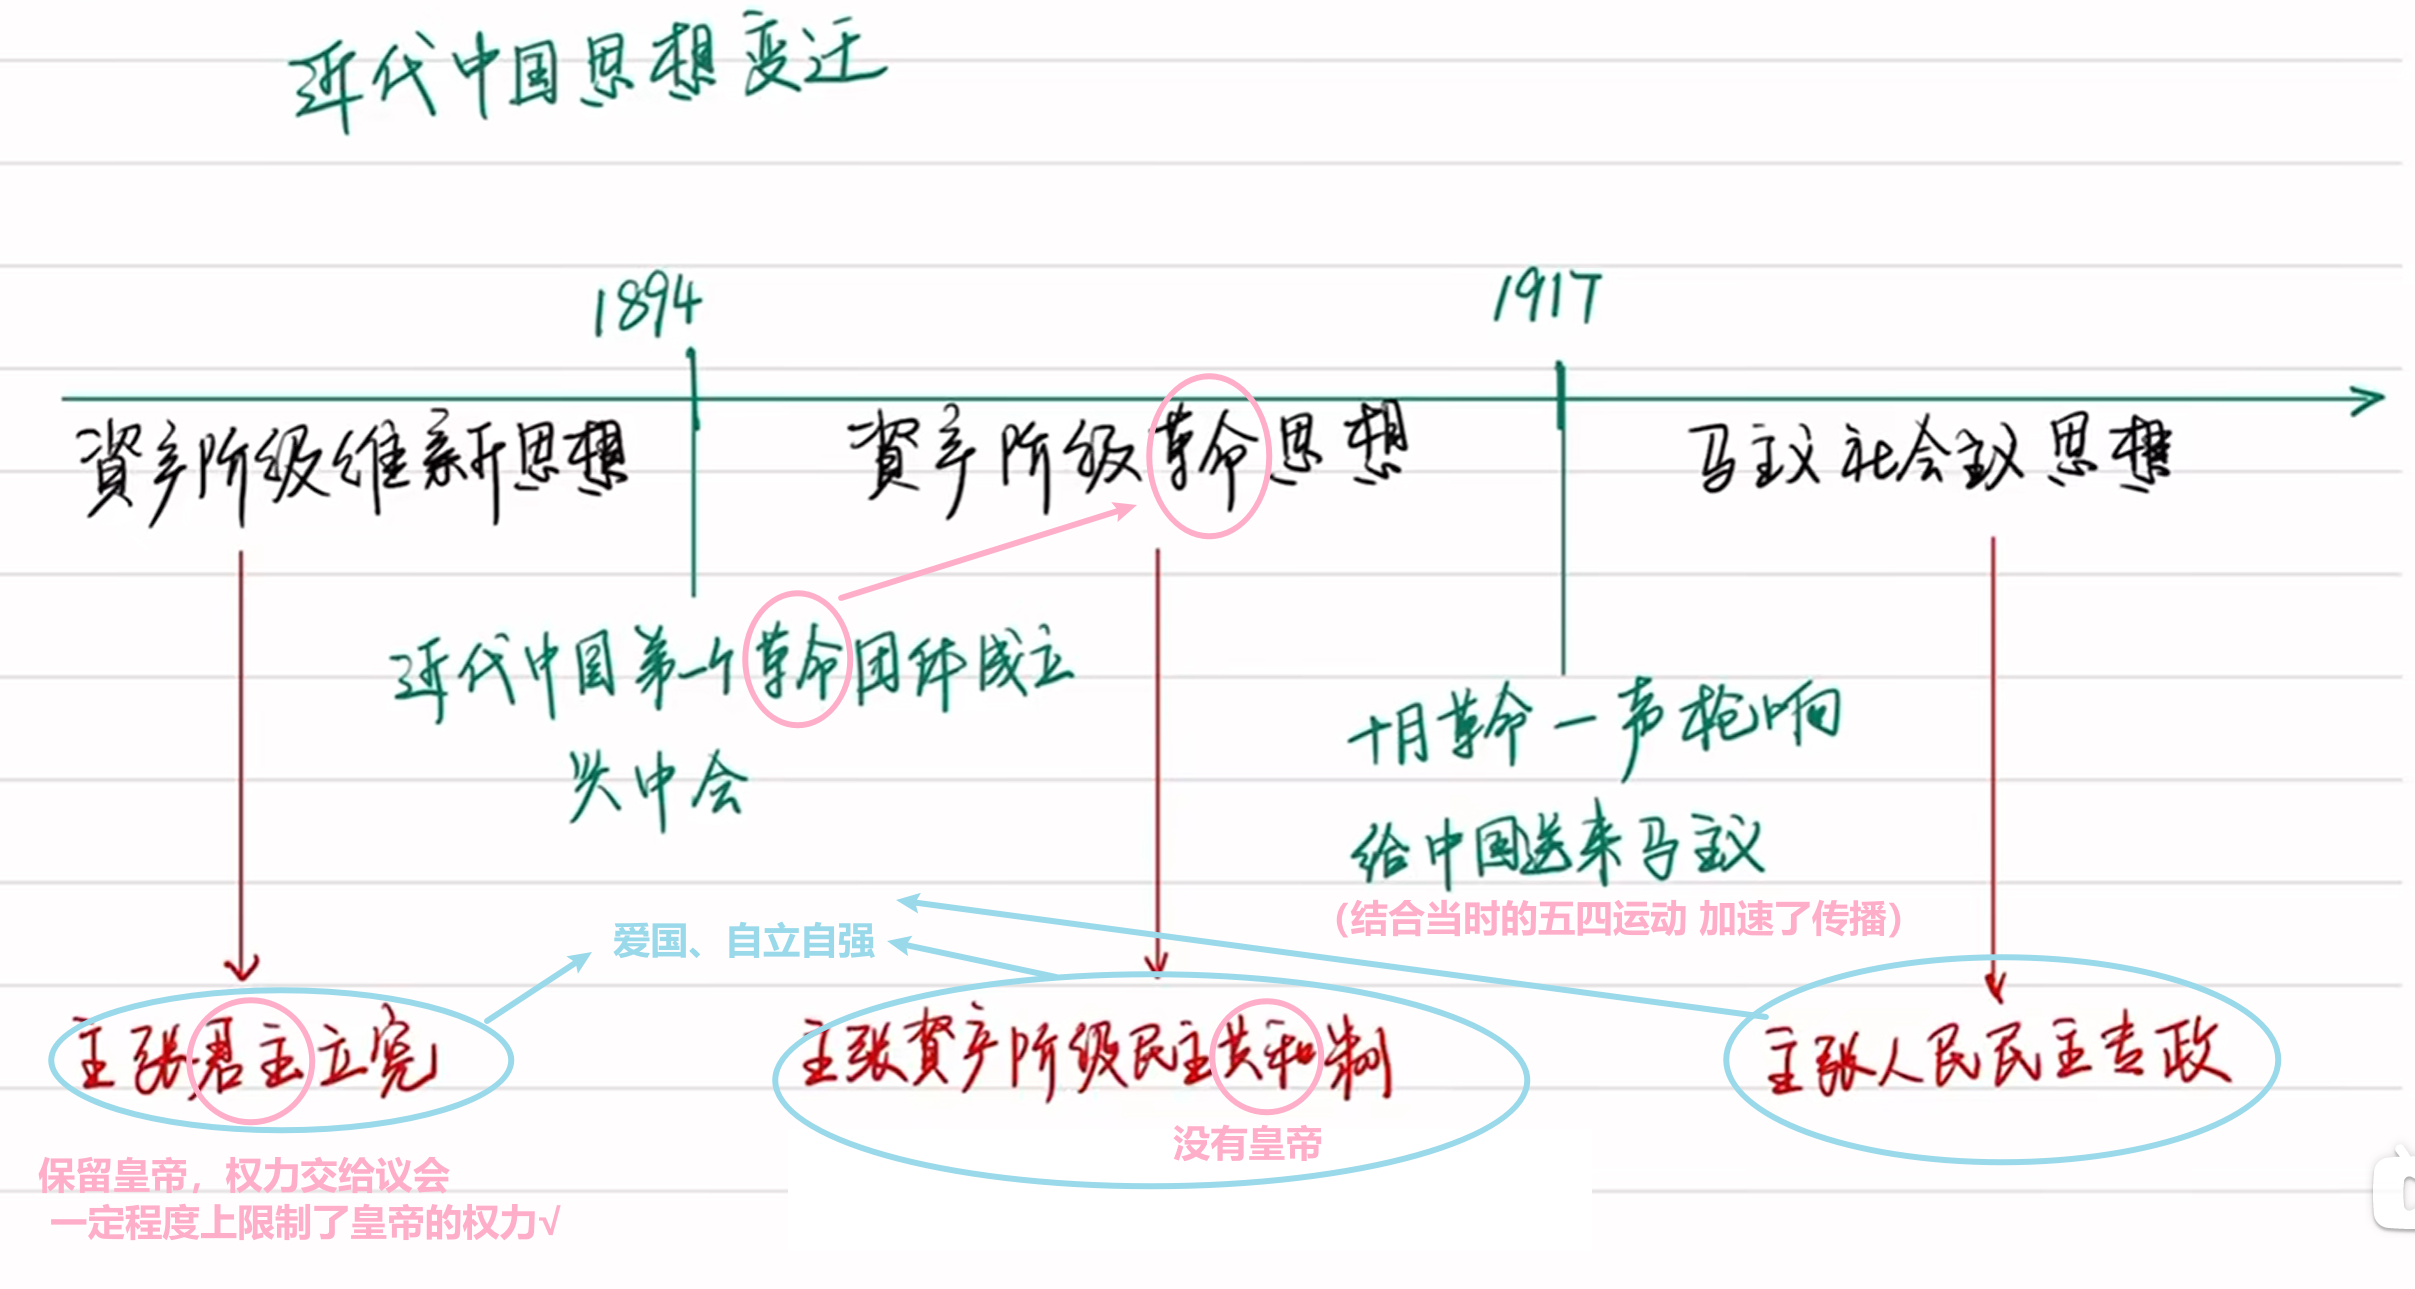 近代中国思想变迁
1894
1917
資产阶级维新思想
資产阶级革命思想
马主义社会主义思想
近代中国第一个革命团体成立
兴中会
十月革命一声枪响
给中国送来马主义
（结合当时的五四运动 加速了传播）
爱国、自立自强
主张君主立宪
主张資产阶级民主共和制
主张人民民主专政
没有皇帝
保留皇帝，权力交给议会
一定程度上限制了皇帝的权力√